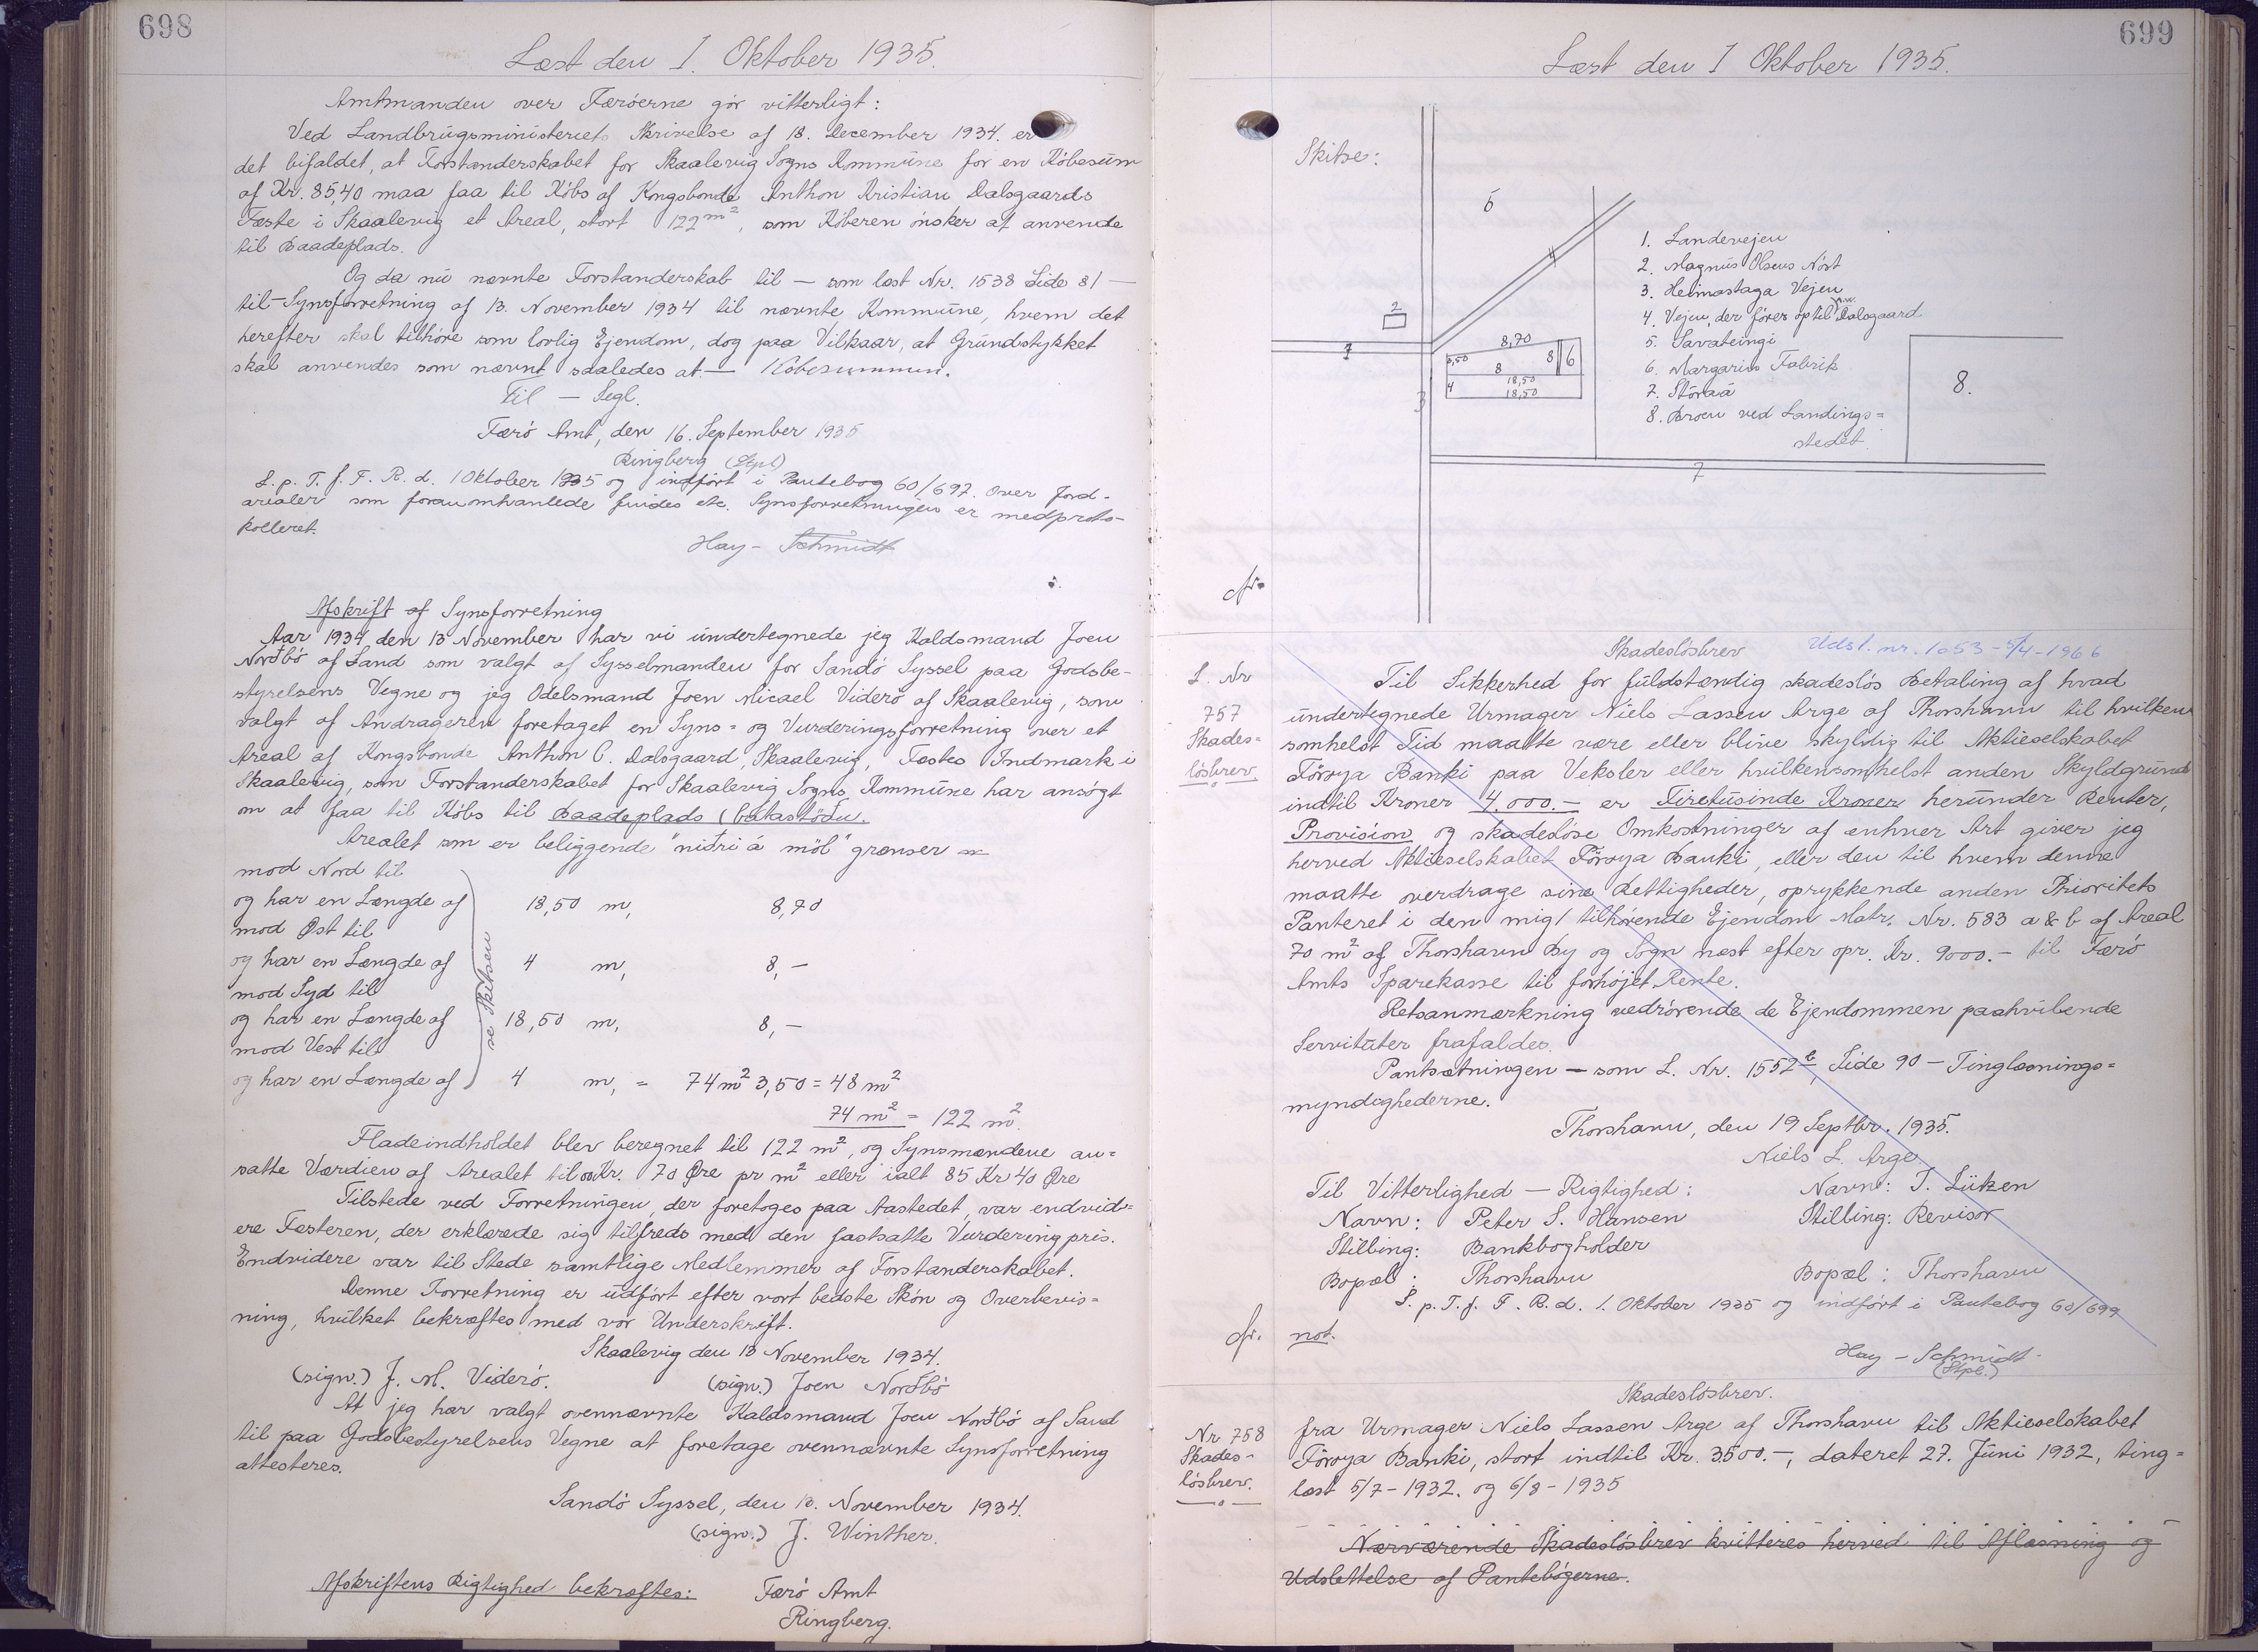 698
Læst den 1. Oktober 1935.
Amtmanden over Færöerne gör vitterligt:
Ved Landbrugsministeriets Skrivelse af 18. December 1934. er
det bifaldet, at Forstanderskabet for Skaalevig Sogns Kommune for en Köbesum
af Kr. 85,40 maa faa til Köbs af Kongsbonde Anthon Kristian Dalsgaards
Fæste i Skaalevig et Areal, stort 122 m², som Köberen önsker at anvende
til Baadeplads.
Og da nu nævnte Forstanderskab til — som læst Nr. 1538 Side 81 —
til Synsforretning af 13. November 1934 til nævnte Kommune, hvem det
herefter skal tilhöre som lovlig Ejendom, dog paa Vilkaar, at Grundstykket
skal anvendes som nævnt saaledes at — Köbesummen.
Til — Segl.
Færö Amt, den 16. September 1935
Ringberg (Stpl)
L. p. T. f. F. R. d. 1 Oktober 1935 og indfört i Pantebog 60/697. Over Jord-
arealer som foranomhanlede findes etc. Synsforretningen er medproto-
kolleret.
Hay - Schmidt
Afskrift af Synsforretning
Aar 1934 den 13 November har vi undertegnede jeg Kaldsmand Joen
Norðbö af Sand som valgt af Sysselmanden for Sandö Syssel paa Godsbe-
styrelsens Vegne og jeg Odelsmand Joen Micael Viderö af Skaalevig, som
valgt af Andrageren foretaget en Syns= og Vurderingsforretning over et
Areal af Kongsbonde Anthon C. Dalsgaard, Skaalevig, Fæstes Indmark i
Skaalevig, som Forstanderskabet for Skaalevig Sogns Kommune har ansøgt
om at faa til Köbs til Baadeplads (bátastöðu.
Arealet som er beliggende "niðri á möl" grænser
mod Nord til
og har en Længde af 18,50 m, 8,70
mod Øst til
og har en Længde af 4 m, 8,-
mod Syd til
og har en Længde af 18,50 m, 8,-
mod Vest til
og har en Længde af 4 m, = 74 m² 3,50 = 48 m²
se Skitsen
74 m² = 122 m².
Fladeindholdet blev beregnet til 122 m², og Synsmændene an=
satte Værdien af Arealet til Kr. 70 Øre pr m² eller ialt 85 Kr 40 Øre
Tilstede ved Forretningen, der foretoges paa Aastedet, var endvid=
ere Fæsteren, der erklærede sig tilfreds med den fastsatte Vurderingpris.
Endvidere var til Stede samtlige Medlemmer af Forstanderskabet.
Denne Forretning er udfört efter vort bedste Skön og Overbevis=
ning, hvilket bekræftes med vor Underskrift.
Skaalevig den 13 November 1934.
(sign.) J. M. Viderö. (sign.) Joen Norðbö
At jeg har valgt ovennævnte Kaldsmand Joen Norðbö af Sand
til paa Godsbestyrelsens Vegne at foretage ovennævnte Synsforretning
attesteres.
Sandö Syssel, den 13. November 1934.
(sign.) J. Winther.
Afskriftens Rigtighed bekræftes: Færö Amt
Ringberg.
699
Læst den 1 Oktober 1935.
Skitse:
5
4
2
1
3
8,70
3,50
8
8
6
4
18,50
18,50
7
8.
1. Landevejen
2. Magnus Olsens Nóst
3. Heimastaga Vejen
4. Vejen, der förer op til A. K. Dalsgaard
5. Savateingi
6. Margarin Fabrik
7. Stóraá
8. Broen ved Landings=
stedet.
dr.
Skadeslösbrev Udsl. nr. 1053 - 5/4 - 1966
L. Nr
757
Skades=
lösbrev
Til Sikkerhed for fuldstændig skadeslös Betaling af hvad
undertegnede Urmager Niels Lassen Arge af Thorshavn til hvilken
somhelst Tid maatte være eller blive skyldig til Aktieselskabet
Föroya Banki paa Veksler eller hvilkensomhelst anden Skyldgrund
indtil Kroner 4.000.- er Firetusinde Kroner herunder Renter,
Provision og skadeslöse Omkostninger af enhver Art giver jeg
herved Aktieselskabet Föroya Banki, eller den til hvem denne
maatte overdrage sine Rettigheder, oprykkende anden Prioritets
Panteret i den mig tilhörende Ejendom Matr. Nr. 583 a & b af Areal
70 m² af Thorshavn By og Sogn næst efter opr. Kr. 9000.- til Færö
Amts Sparekasse til forhöjet Rente.
Retsanmærkning vedrörende de Ejendommen paahvilende
Servituter frafaldes.
Pantsætningen — som L. Nr. 1552 b, Side 90 - Tinglæsnings=
myndighederne.
Thorshavn, den 19 Septbr. 1935.
Niels L. Arge
Til Vitterlighed — Rigtighed: Navn: T. Lützen
Navn: Peter S. Hansen Stilling: Revisor
Stilling: Bankbogholder
Bopæl: Thorshavn Bopæl: Thorshavn
L. p. T. f. F. R. d. 1. Oktober 1935 og indfört i Pantebog 60/699
dr. not.
Hay - Schmidt
(Stpl.)
Skadeslösbrev.
Nr 758
Skades-
lösbrev.
fra Urmager Niels Lassen Arge af Thorshavn til Aktieselskabet
Föroya Banki, stort indtil Kr. 3.500.-, dateret 27. Juni 1932, ting=
læst 5/7 - 1932. og 6/8 - 1935
Nærværende Skadeslösbrev kvitteres herved til Aflæsning og
Udslettelse af Pantebögerne.